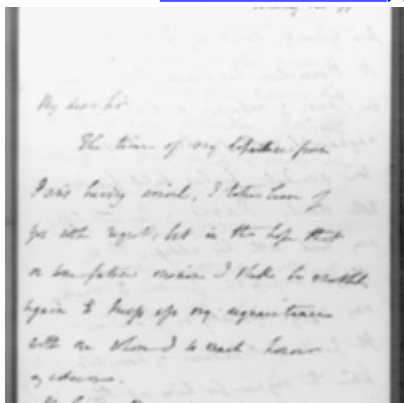 My dear Sir
The time of my departure from
Paris having arrived, I take leave of
you with regret; but in the hope that
on some future occasion I shall be enabled
again to keep up my acquaintance
with one whom I so much honour